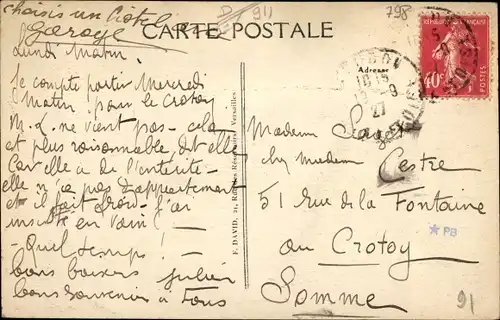 choisis un hôtel
Garage
CARTE POSTALE
D
911
798
Lundi Matin
Je compte partir Mercredi
Matin pour le Crotoy
M. L. ne vient pas - cela
est plus raisonnable, dit elle
Car elle a de l'entérite -
elle n'a pas d'appartement
et il fait froid - j'ai
insisté en vain!
- Quel temps!
bons baisers Julien
bons souvenirs à Tous
F. DAVID, 21, Rue des Réservoirs, Versailles.
Adresse
RÉPUBLIQUE FRANÇAISE
40c
POSTES
27
Madame
chez madame Cestre
51 rue de la Fontaine
au Crotoy
Somme
*PB
91